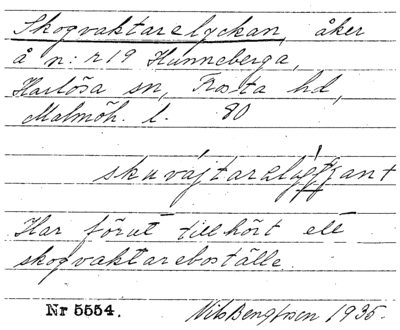 Skogvaktarelyckan, åker
å n:r 19 Hunneberga,
Harlösa sn, Frosta hd,
Malmöh. l. 80
Har förut tillhört ett
skogvaktareboställe.
Nr 5554. Nils Bengtsson 1935.